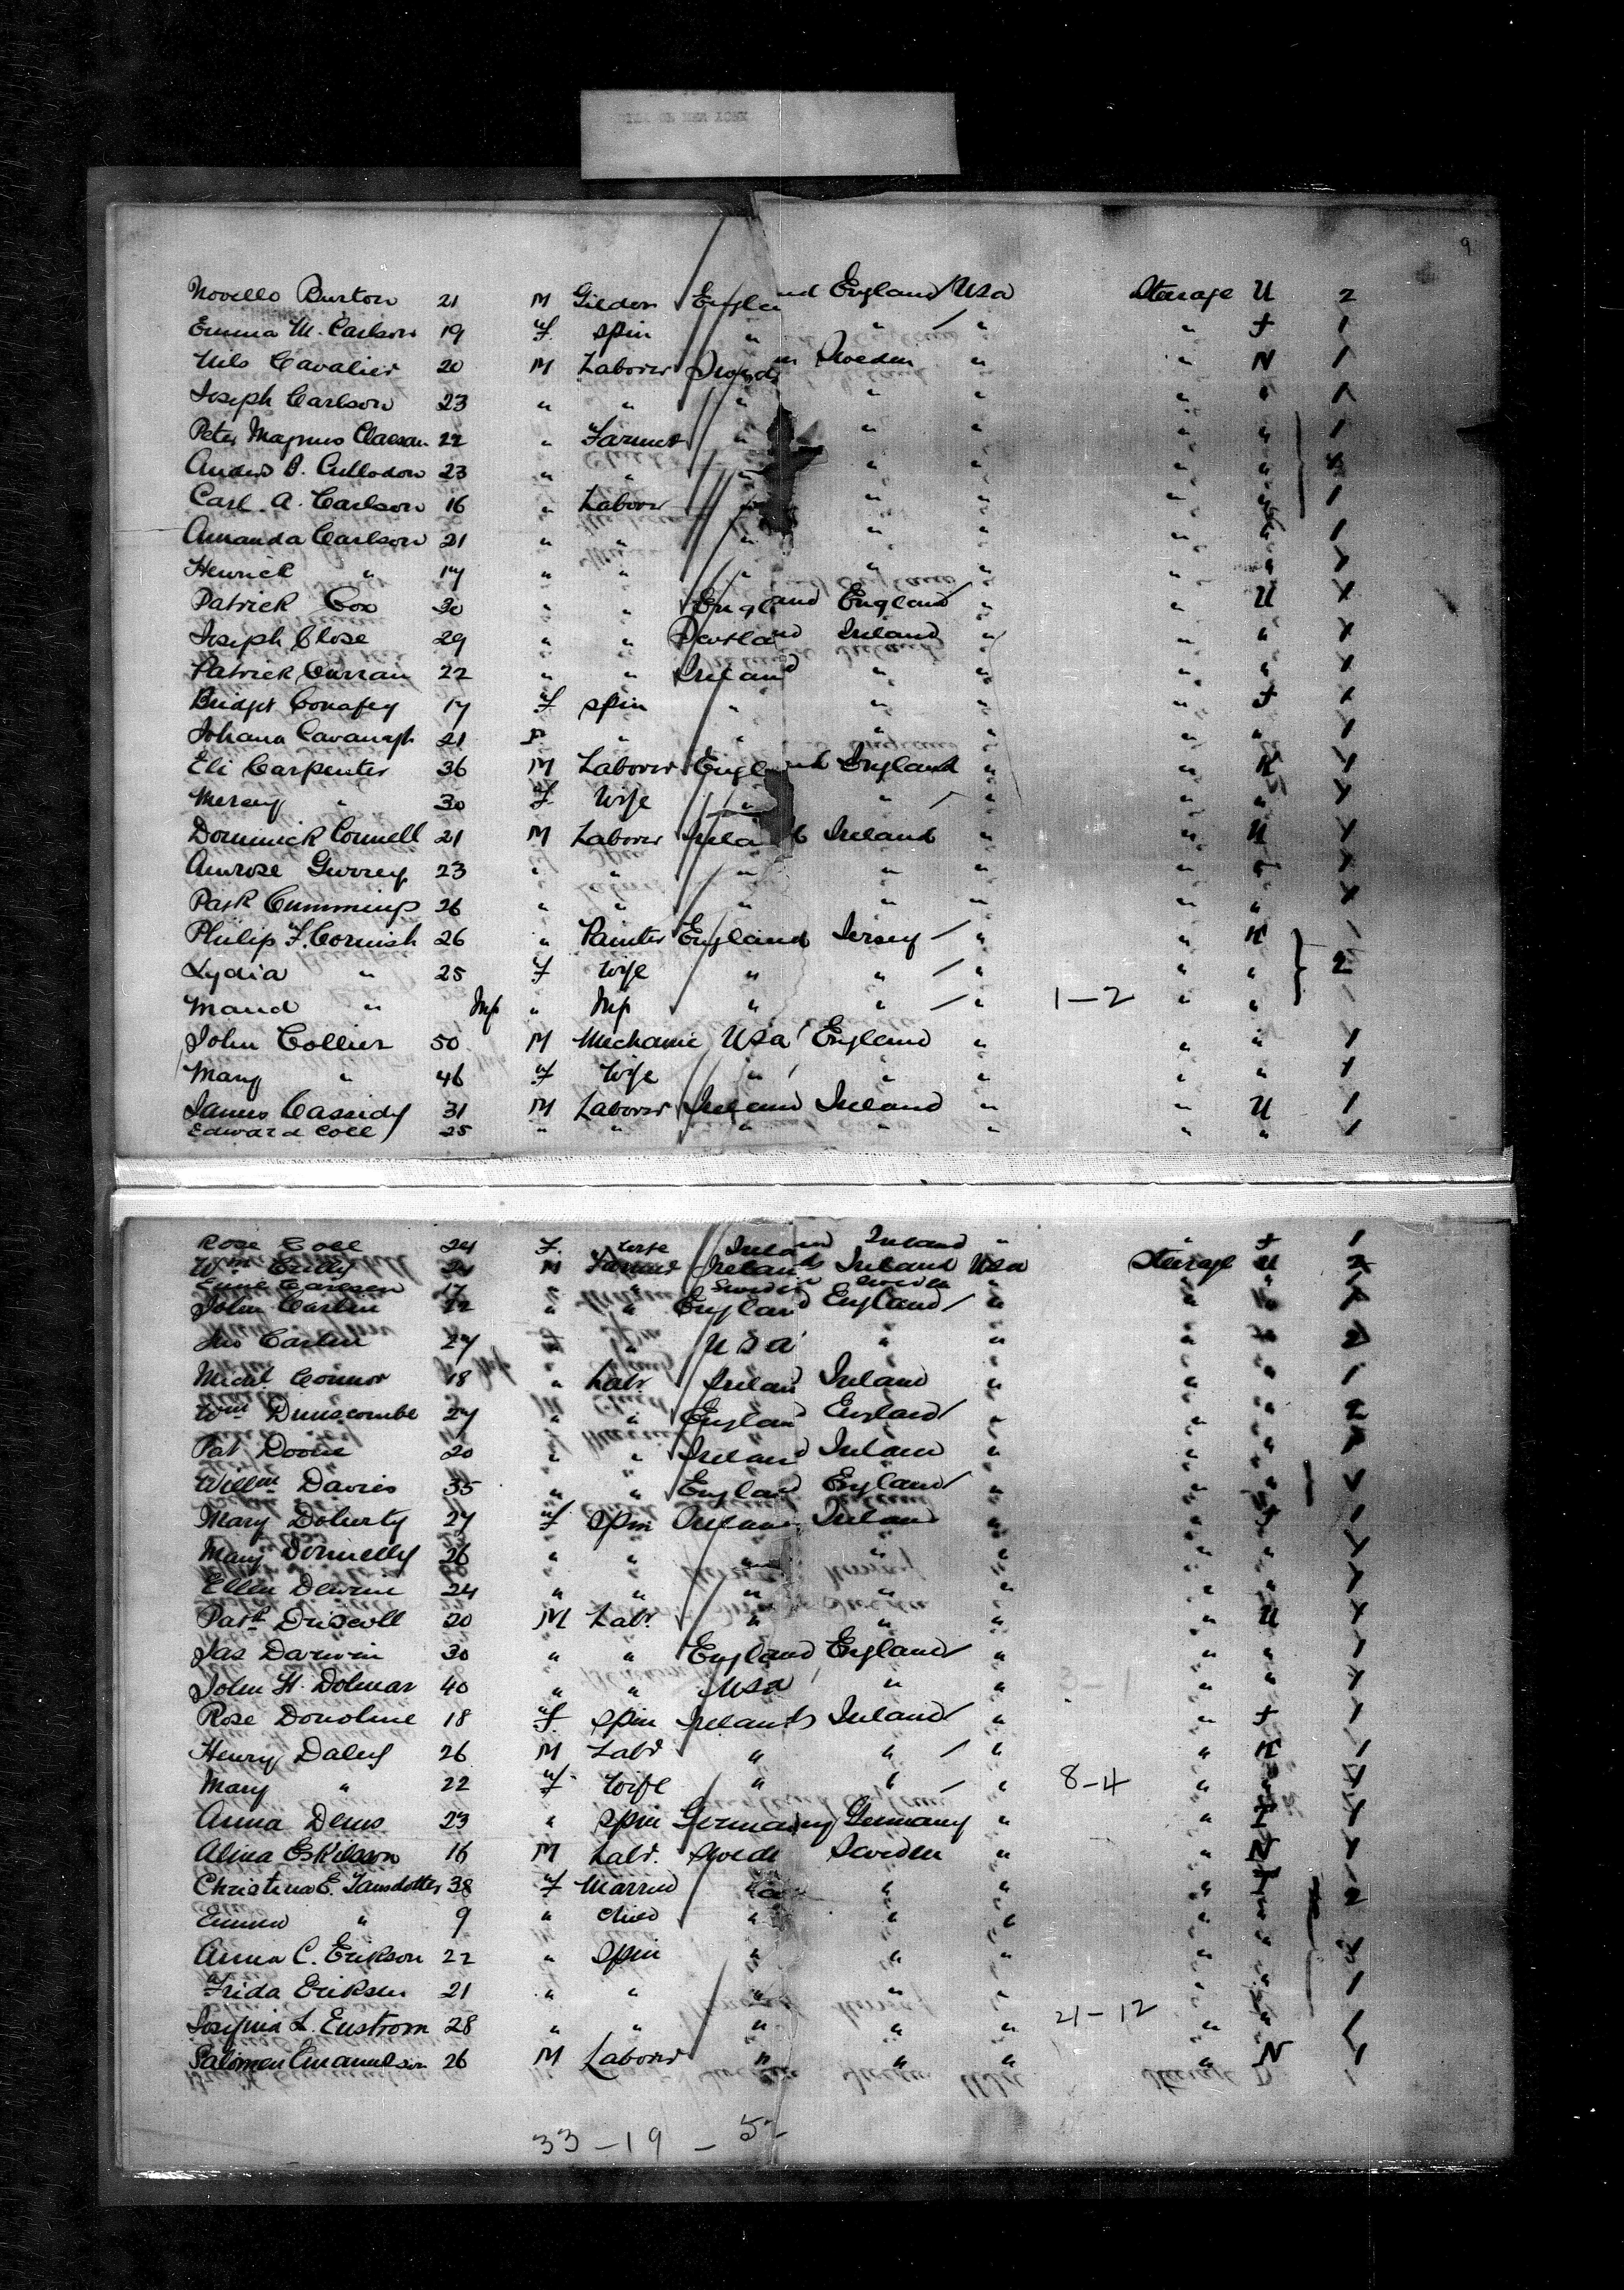 9
Novello Burton 21 M Gilder England England / Usa Steerage U 2
Emma M. Carlson 19 F Spin " " / " " F 1
Nils Cavalier 20 M Laborer Sweden Sweden " " N 1
Joseph Carlson 23 " " " " " " " 1
Peter Magnus Claeson 22 " Farmer " " " " " 1
Anders B. Cullodon 23 " " " " " " "
Carl A. Carlson 16 " Laborer " " " " " 1
Amanda Carlson 21 " " " " " " 1
Henrick " 17 " " " " " " "
Patrick Cox 30 " " England England / " " U
Joseph Close 29 " " Scotland Ireland " " "
Patrick Curran 22 " " Ireland " " " "
Bridget Conafey 17 F Spin " " " " F
Johana Cavanagh 21 F. " " " " " " 1
Eli Carpenter 36 M Laborer England England " "
Mercy " 30 F Wife " " / " " "
Dominick Connell 21 M Laborer Ireland Ireland " " U
Amrose Gurrey 23 " " " " " "
Patk Cummings 26 " " " " " " "
Philip F. Cornish 26 " Painter England Jersey / " "
Lydia " 25 F Wife " " / " " " 2
Maud " Inf " Inf " " / " 1-2 " "
John Collier 50 M Mechanic Usa England " " " 1
Mary " 46 F Wife " " " " " 1
James Cassidy 31 M Laborer Ireland Ireland " " U 1
Edward Coll 25 " " " " " " " 1
Rose Coll 24 F. Wife Ireland Ireland " " F 1
Wm M Ireland Ireland Usa Steerage U
Carlson 17 " " Sweden Sweden "
John Carlin 22 " " England England / " "
Jno Carlin 27 " " U S a " " "
Michl Connor 18 " Labr. Ireland Ireland " " " 1
Wm Dunscombe 27 " " England England / " " "
Pat Doone 20 " " Ireland Ireland " " "
Willm Davies 35 " " England England / " " "
Mary Doherty 27 F Spin Ireland Ireland " " F 1
Mary Donnelly 26 " " " " " " "
Ellen Devine 24 " " " " " " "
Patk Driscoll 20 M Labr. " " " " U
Jas Darwin 30 " " England England / " " " 1
John H. Dolmar 40 " " Usa " " " "
Rose Donohue 18 F. Spin Ireland Ireland / " " F 1
Henry Daley 26 M Labr " " / " " 1
Mary " 22 F Wife " " / " 8-4 " "
Anna Dems 23 " Spin Germany Germany " "
Alma Eskilsson 16 M Labr. Swede Sweden " "
Christina E. Jansdotter 38 F Married " " " " 2
Emma " 9 " Child " " " " "
Anna C. Erikson 22 " Spin " " " " "
Frida Erikson 21 " " " " " " " 1
Josefina L. Enstrom 28 " " " " " 21-12 " "
Salomon Emanuelson 26 M Laborer " " " " N 1
33-19-52